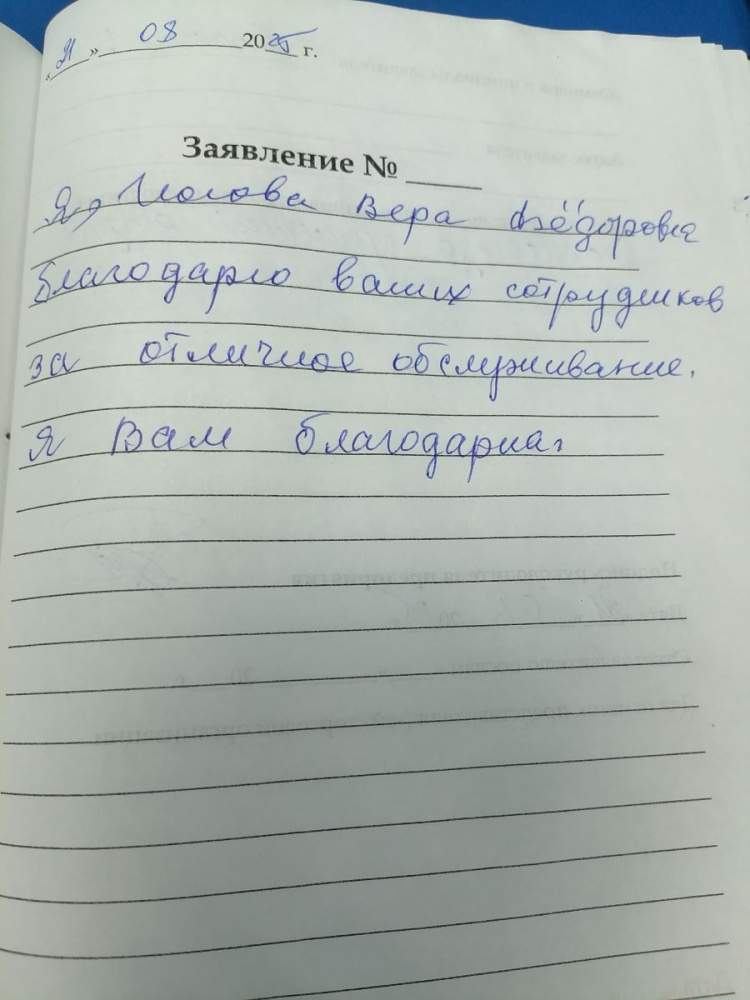 « » 08 2025 г.
Заявление № ____
Я, Вера Фёдоровна
благодарю ваших сотрудников
за отличное обслуживание.
Я Вам благодарна.